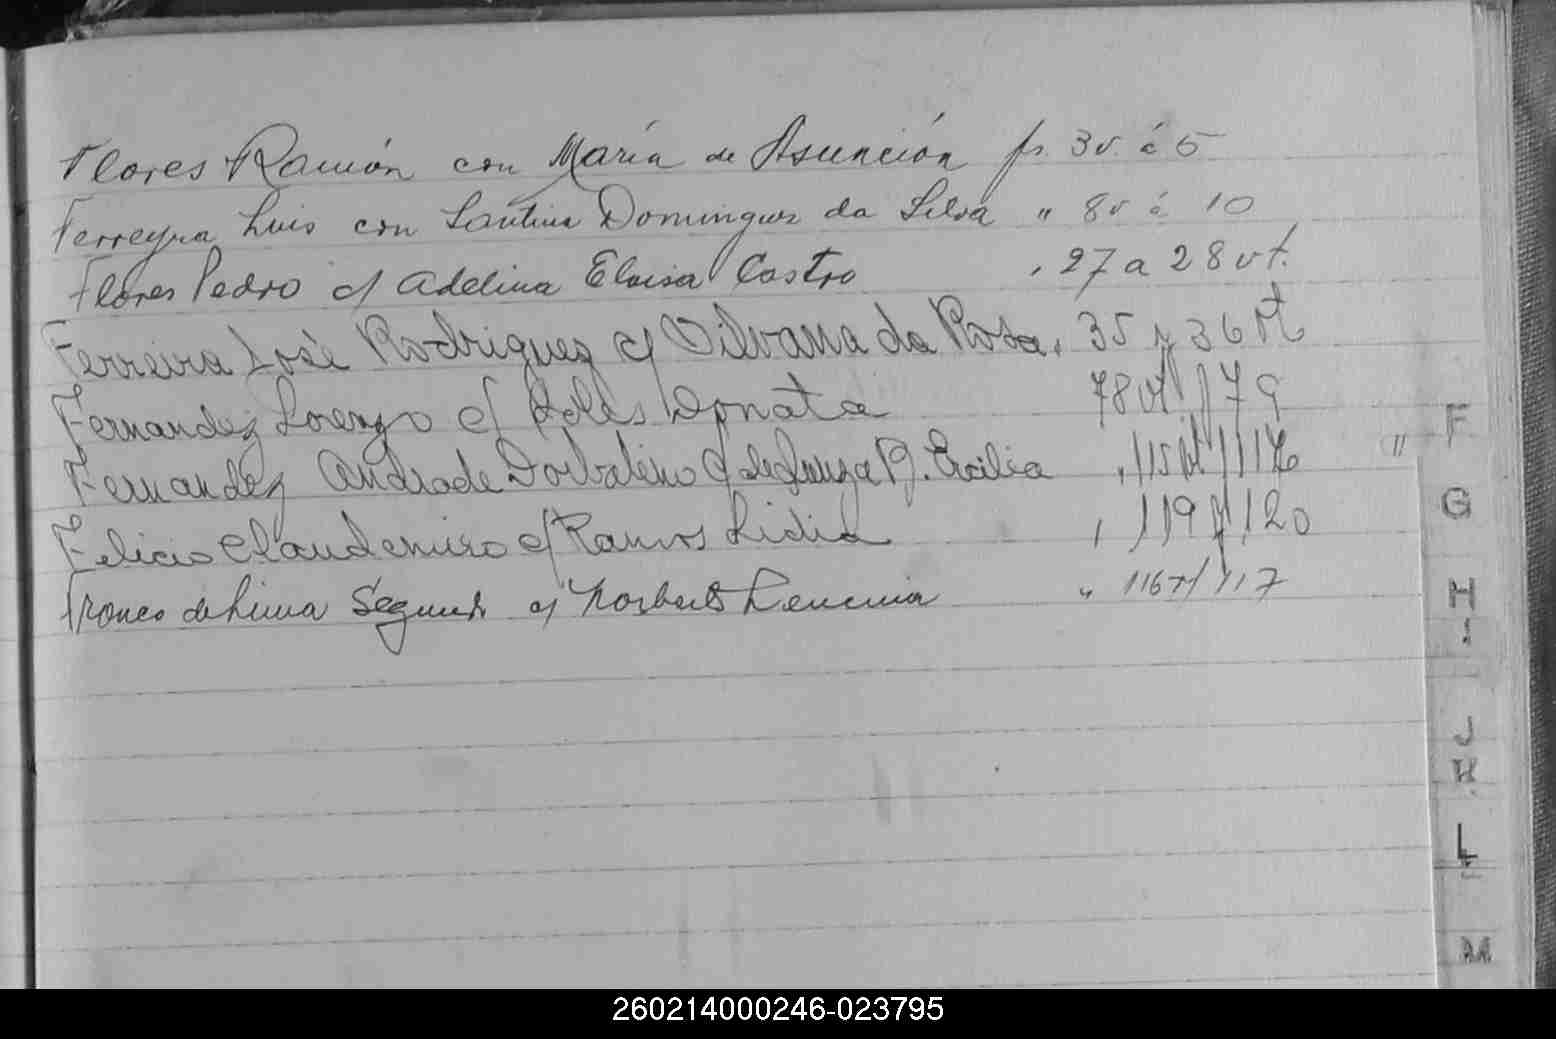 Flores Ramón con María de Asunción fs. 3v. á 5
Ferreyra Luis con Santina Domingues da Silva " 8v á 10
Flores Pedro c/ Adelina Eloisa Castro , 27 a 28 vt.
Ferreira José Rodriguez c/ Silvana da Rosa, 35 y 36 vt
Fernandez Lorenzo c/ Donata 78 vt // 79
Fernandez Andrade c/ B. Ercilia , 115 vt // 116
"
Felicio Claudemiro c/ Ramos Lidia , 119 // 120
Franco de Lima c/ Norberto " 116 vt/ 117
F
G
H
I
J
K
L
M
260214000246-023795